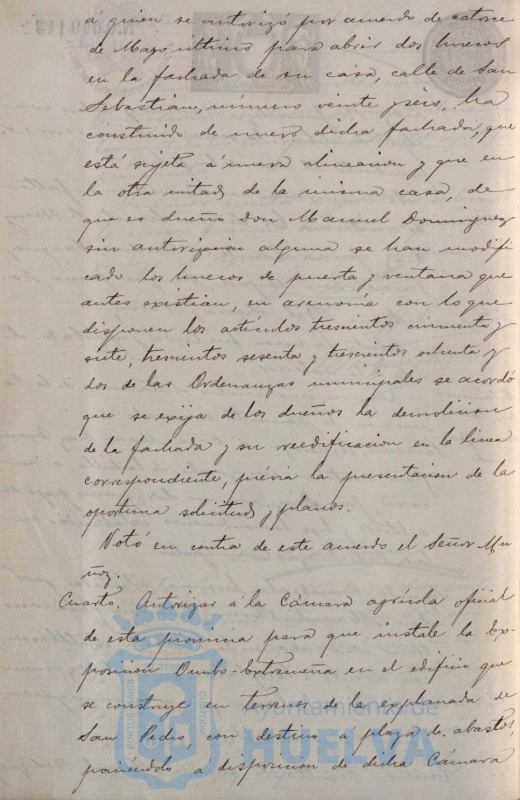 a quien se autorizó por acuerdo de catorce
de Mayo último para abrir dos huecos
en la fachada de su casa, calle de San
Sebastian, número veinte y seis, ha
construido de nuevo dicha fachada, que
está sujeta á nueva alineacion y que en
la otra mitad de la misma casa, de
que es dueño Don Manuel Dominguez
sin autorizacion alguna se han modifi
cado los huecos de puerta y ventana que
antes existian, en armonia con lo que
disponen los artículos trescientos cincuenta y
siete, trescientos sesenta y trescientos ochenta y
dos de las Ordenanzas municipales se acordó
que se exija de los dueños la demolicion
de la fachada y su reedificacion en la linea
correspondiente, prévia la presentacion de la
oportuna solicitud y planos.
Votó en contra de este acuerdo el Señor Mu
ñoz.
Cuarto. Autorizar á la Cámara agrícola oficial
de esta provincia para que instale la Ex-
posicion Onubo-Extremeña en el edificio que
se construye en terrenos de la explanada de
San Pedro, con destino a plaza de abastos,
poniéndolo a disposicion de dicha Cámara
Ayuntamiento de
HUELVA